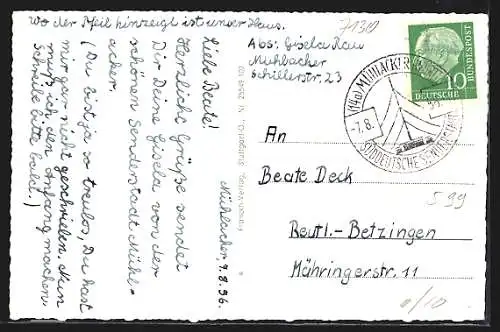 wo der Pfeil hinzeigt ist unser Haus.
71310
Abs: Gisela Rau
Mühlacker
Schillerstr. 23
(14a) MÜHLACKER
-7.8.
SÜDDEUTSCHE
DEUTSCHE
BUNDESPOST
10
Mühlacker 7.8.56.
Liebe Beate!
Herzliche Grüße sendet
Dir Deine Gisela von der
schönen Senderstadt Mühl-
acker.
(Du bist ja so treulos, Du hast
mir gar nicht geschrieben. Nun
muß ich den Anfang machen.
Schreibe bitte bald.)
An
Beate Deck
Reutl.-Betzingen
Mähringerstr. 11
S 99